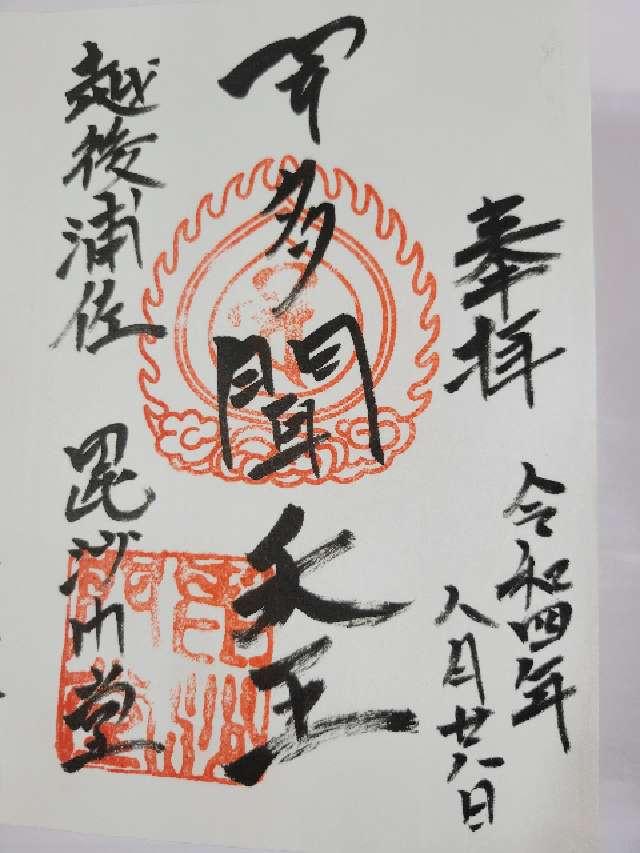 奉拝
令和四年
八月廿八日
多聞天王
越後浦佐
毘沙門堂